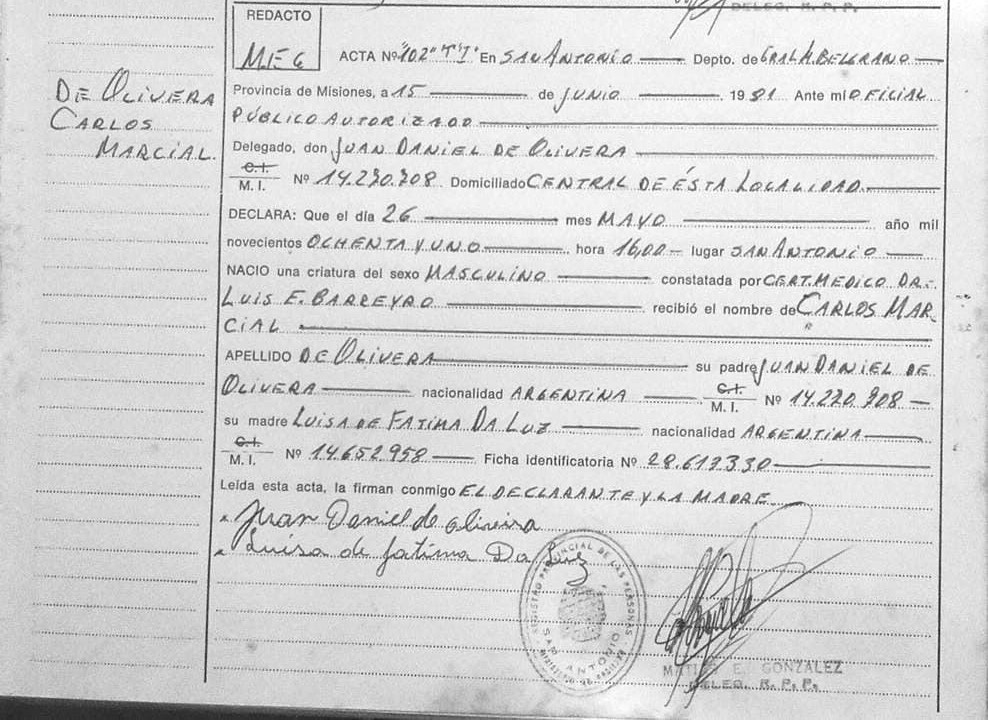 DELEG. R. P. P.
REDACTO
M.E G
ACTA Nº "102" "T°I" En SAN ANTONIO Depto. de GRAL M. BELGRANO
DE OLIVERA
CARLOS
MARCIAL.
Provincia de Misiones, a 15 de JUNIO 1981 Ante mi OFICIAL
PÚBLICO AUTORIZADO
Delegado, don JUAN DANIEL DE OLIVERA
C.I.
M. I. Nº 14.220.208 Domiciliado CENTRAL DE ÉSTA LOCALIDAD.
DECLARA: Que el día 26 mes MAYO año mil
novecientos OCHENTA Y UNO hora 16,00 lugar SAN ANTONIO
NACIO una criatura del sexo MASCULINO constatada por CERT. MEDICO DR.
LUIS E. BARREYRO recibió el nombre de CARLOS MAR
CIAL
APELLIDO DE OLIVERA su padre JUAN DANIEL DE
OLIVERA nacionalidad ARGENTINA C.I. M. I. Nº 14.220.208
su madre LUISA DE FATIMA DA LUZ nacionalidad ARGENTINA
C.I.
M. I. Nº 14.652.958 Ficha identificatoria Nº 28.613.330
Leída esta acta, la firman conmigo EL DECLARANTE Y LA MADRE
Juan Daniel de oliveira
Luisa de fatima Da Luz
REGISTRO PROVINCIAL DE LAS PERSONAS
SAN ANTONIO
E. GONZALEZ
DELEG. R. P. P.